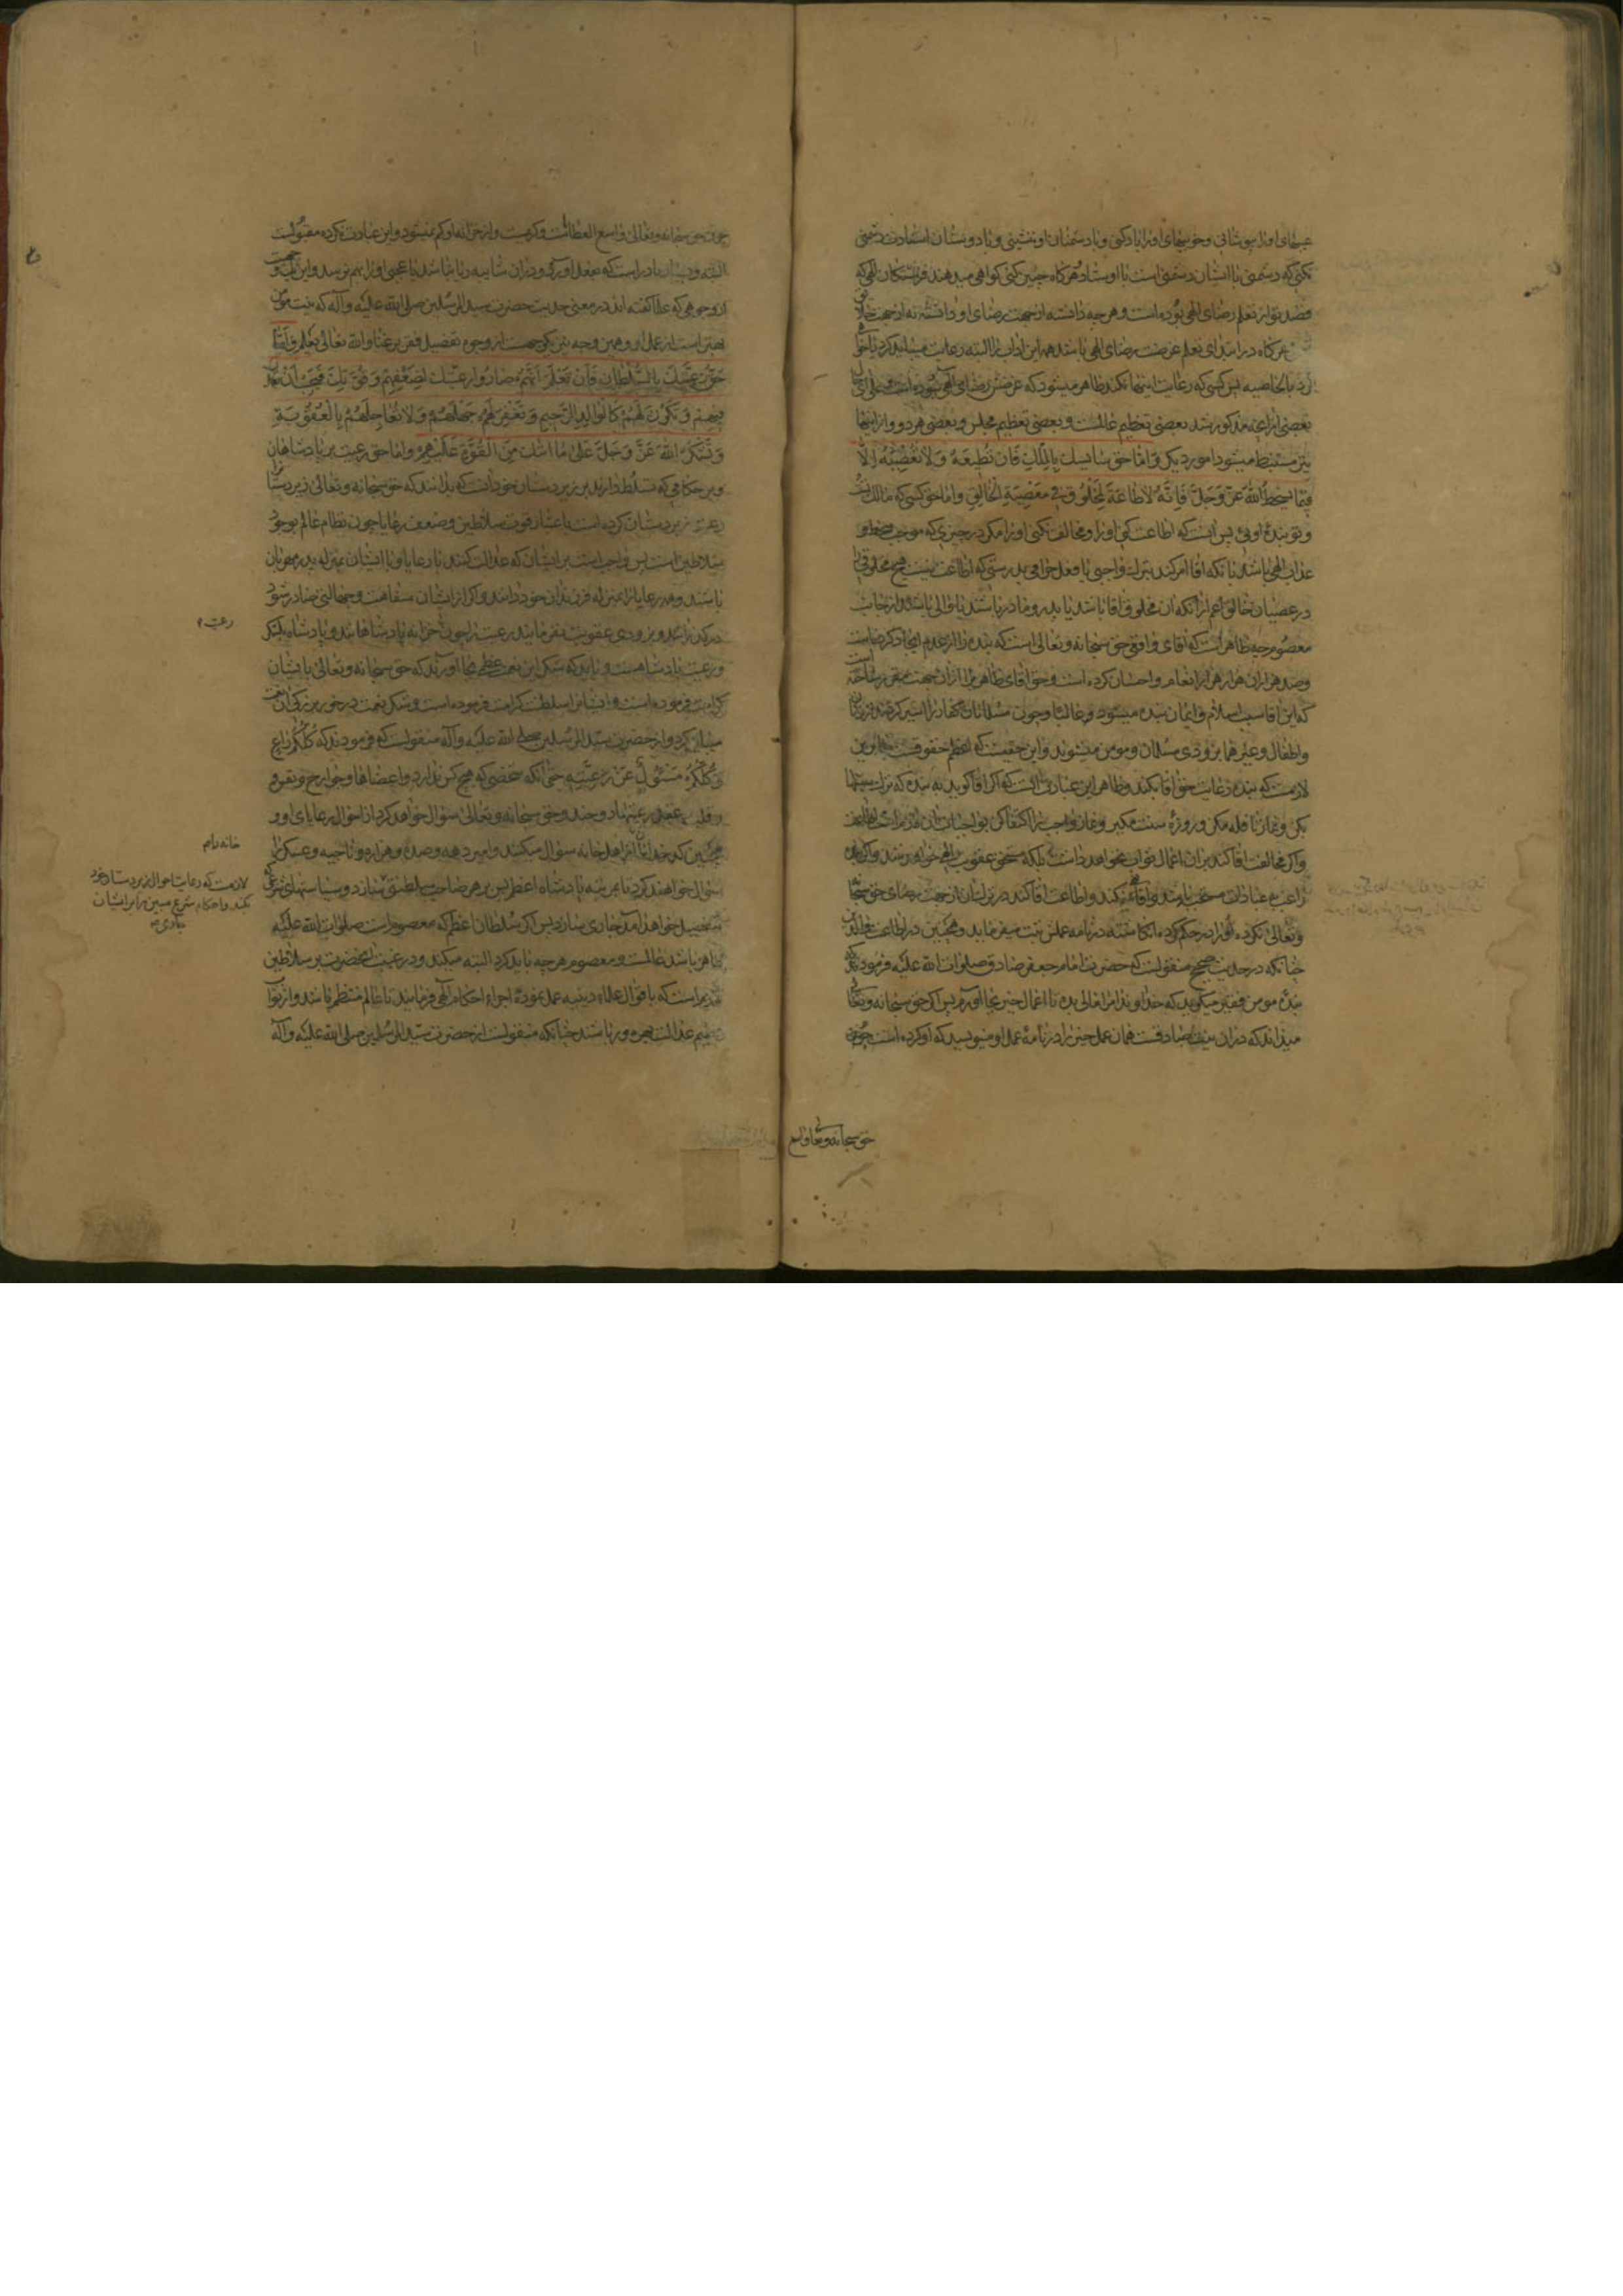 عیبهای او را بپوشانی و خوبیهای او را یاد کنی و با دشمنان او ننشینی و با دوستان استادت دشمنی
نکنی که دشمنی با ایشان دشمنی است با اوستاد و هرگاه چنین کنی گواهی میدهند فرشتگان الهی که
قصد تو از تعلم رضای الهی بوده است و هر چه دانسته از جهت رضای او دانسته نه از جهت خلایق
هرگاه در ابتدای تعلم غرضت رضای الهی باشد همه این اداب را البته رعایت میباید کرد
بالخاصیه پس کسی که رعایت اینها نکند ظاهر میشود که غرضش رضای الهی نبوده است
بعضی از انچه مذکور شد بعضی تعظیم عالمست و بعضی تعظیم مجلس و بعضی هر دو و از اینها
نیز مستنبط میشود امور دیگر وَاَمّا حَقُّ سَایِسِكَ بِالْمِلْكِ فَاَنْ تُطیعَهُ وَلا تَعْصِیَهُ اِلّا
فیما یُسْخِطُ اللهَ عَزَّ وَجَلَّ فَاِنَّهُ لاطاعَةَ لِمَخْلُوقٍ فی مَعْصِیَةِ الْخالِقِ واما حق کسی که مالک تست
و تو بندهٔ اویی پس انست که اطاعت کنی او را و مخالفت نکنی او را مگر در چیزی که موجب سخط و
عذاب الهی باشد بانکه اقا امر کند بترک واجبی یا فعل حرامی بدرستی که اطاعت نیست هیچ مخلوقی را
در عصیان خالق اعم از انکه ان مخلوق اقا باشد یا پدر و مادر باشند یا والی باشد از جانب
معصوم چه ظاهر است که اقای واقعی حق سبحانه و تعالی است که بنده را از عدم ایجاد کرده است
و صد هزاران هزار هزار انعام و احسان کرده است و حق اقای ظاهر را از ان جهت مقرر ساخته است
که این اقا سبب اسلام و ایمان بنده میشود و غالبا چون مسلمانان کفار را اسیر کردند زنان
و اطفال و غیر هما بزودی مسلمان و مومن میشوند و این حقیست که اعظم حقوقست بنابراین
لازمست که بنده رعایت حق اقا بکند و ظاهر این عبارت انست که اگر اقا گوید به بنده که ترک سنتها
بکن و نماز نافله مکن و روزهٔ سنت مگیر و نماز واجب را اکتفا کن بواجبات ان
و اگر مخالفت اقا کند بران اعمال ثواب نخواهد داشت بلکه مستحق عقوبت الهی خواهد شد و اگر بنده
راغب عبادات مستحبه باشد و اقا منع کند و اطاعت اقا کند در ترک ان از جهت رضای حق سبحانه
و تعالی نکرده او را در حکم کرده انگاشته در نامه عملش ثبت میفرماید و همچنین در اطاعت والدین
چنانکه در حدیث صحیح منقولست که حضرت امام جعفر صادق صلوات الله علیه فرمودند که
بندهٔ مومن فقیر میگوید که خداوندا مرا مالی بده تا اعمال خیر بجا اورم پس اگر حق سبحانه و تعالی
میداند که در ان نیت صادقست همان عمل خیر را در نامهٔ عمل او مینویسد که او کرده است چون
حق سبحانه و تعالی واسع
چون حق سبحانه و تعالی واسع العطاست و کریمست و از خزانه او کم نمیشود و این عبادت نکرده مقبولست
البته و بسیار نادر است که بفعل اورد و در ان شایبه ریا نباشد یا عجبی او را بهم نرسد و این یکیست
از وجوهی که علما گفته اند در معنی حدیث حضرت سید المرسلین صلی الله علیه و آله که نیت مومن
بهتر است از عمل او و همین وجه نیز یکی جهت از وجوه تفضیل فقر بر غنا و الله تعالی یعلم وَاَمّا
حَقُّ رَعِیَّتِكَ بِالسُّلْطانِ فَاَنْ تَعْلَمَ اَنَّهُمْ صارُوا رَعِیَّتَكَ لِضَعْفِهِمْ وَ قُوَّتِكَ فَیَجِبُ اَنْ تَعْدِلَ
فیهِمْ وَ تَكُونَ لَهُمْ كَالْوالِدِ الرَّحیمِ وَ تَغْفِرَ لَهُمْ جَهْلَهُمْ وَلا تُعاجِلَهُمْ بِالْعُقُوبَةِ
وَ تَشْكُرَ اللهَ عَزَّ وَجَلَّ عَلی ما اتاكَ مِنَ الْقُوَّةِ عَلَیْهِمْ واما حق رعیت بر پادشاهان
و بر حکامی که تسلط دارند بر زیردستان خود انست که بدانند که حق سبحانه و تعالی زیردستان را
رعیت زبردستان کرده است باعتبار قوت سلاطین و ضعف رعایا چون نظام عالم بوجود
سلاطین است پس واجب است بر ایشان که عدالت کنند با رعایا و با ایشان بمنزله پدر مهربان
باشند و همه رعایا را بمنزله فرزندان خود دانند و اگر از ایشان سفاهت و جهالتی صادر شود
درگذرانند و بزودی عقوبت نفرمایند رعیت را چون خزانه پادشاهانند و پادشاه بلشکر
و رعیت پادشاهست و باید که شکر این نعمت عظمی بجا اورند که حق سبحانه و تعالی بایشان
کرامت فرموده است و ایشانرا سلطنت کرامت فرموده است و شکر نعمت در خور بزرگی ان نعمت
میباید کرد و از حضرت سید المرسلین صلی الله علیه و آله منقولست که فرمودند که كُلُّكُمْ راعٍ
وَ كُلُّكُمْ مَسْئُولٌ عَنْ رَعِیَّتِهِ حتی انکه شخصی که هیچ کس ندارد و اعضاها و جوارح و نفوس و
و قلب و عقل رعیتهاند و خود و حق سبحانه و تعالی سؤال خواهد کرد از احوال رعایای او و
همچنین کدخدایان از اهل خانه سؤال میکنند و امیر دهه و صده و هزاره و ناحیه و عسکر را
سؤال خواهند کرد تا مرتبه پادشاه اعظم پس بر هر صاحب سلطنتی
خواهد آمد جاری سازد پس اگر سلطان اعظم که معصوم است صلوات الله علیه
ظاهر باشد عالمست و معصوم هر چه باید کرد البته میکند و در غیبت انحضرت بر سلاطین
لازم است که باقوال علماء دینیه عمل نموده اجراء احکام الهی فرمایند تا عالم منتظم باشد و از ثواب
عظیم عدالت بهره ور باشند چنانکه منقولست از حضرت سید المرسلین صلی الله علیه و آله
رعیت
خانه تمام
لازمست که رعایت احوال زیردستان خود
بکند و احکام شرع مبین را بر ایشان
جاری